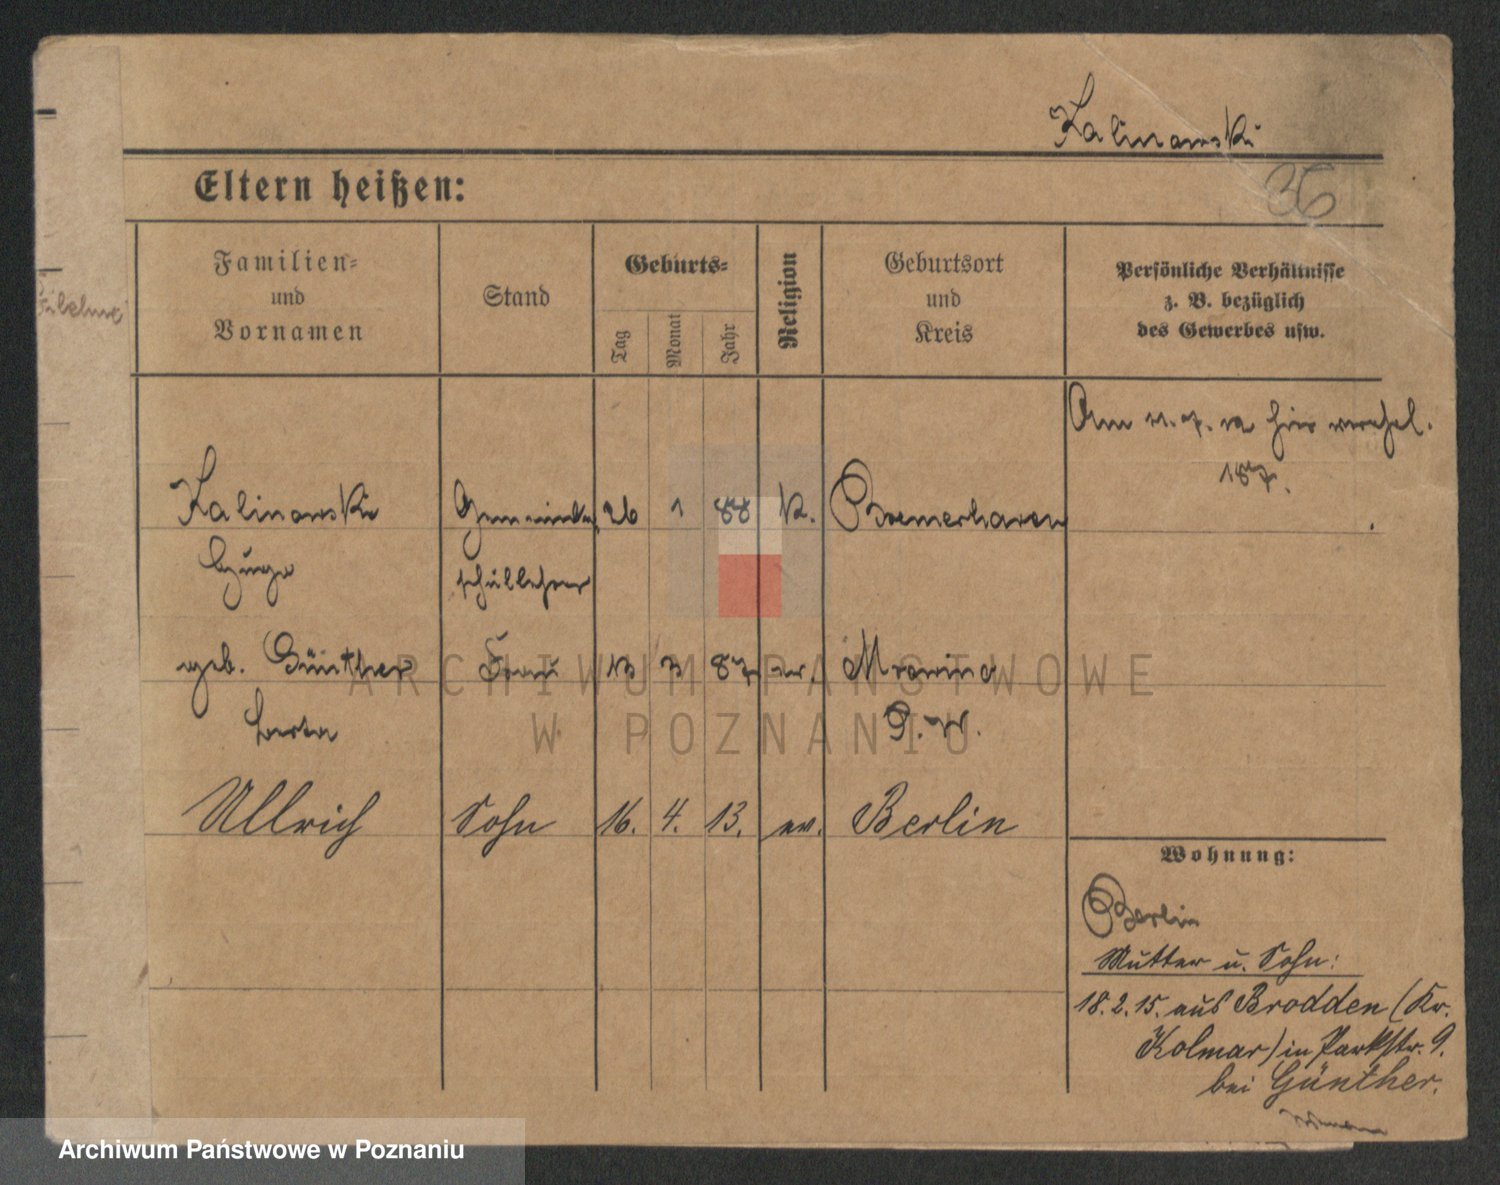 Kalinowski
36
Eltern heißen:
Familien=
und
Vornamen
Stand
Geburts=
Tag
Monat
Jahr
Religion
Geburtsort
und
Kreis
Persönliche Verhältnisse
z. B. bezüglich
des Gewerbes usw.
Am 11. 7. 12 hier verehel.
187.
Kalinowski Gemeinde 26 1 88 K. Bremerhaven
Hugo schullehrer
geb. Günther Frau 13 3 87 ev. Mrowino
Berta P. W.
Ullrich Sohn 16. 4. 13. ev. Berlin
Wohnung:
Berlin
Mutter u. Sohn:
18. 2. 15. aus Brodden (Kr.
Kolmar) in Parkstr. 9.
bei Günther.
ARCHIWUM PAŃSTWOWE
W POZNANIU
Archiwum Państwowe w Poznaniu